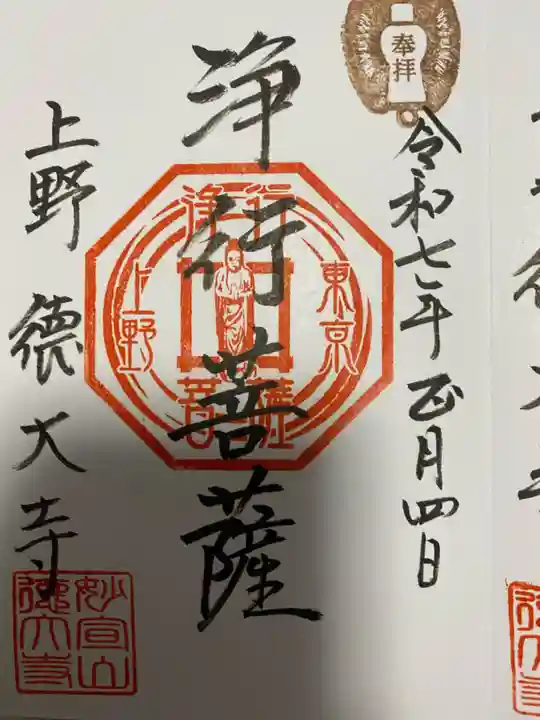 奉拝
令和七年正月四日
浄行菩薩
浄行
東京
上野
菩薩
上野 徳大寺
妙宣山
徳大寺